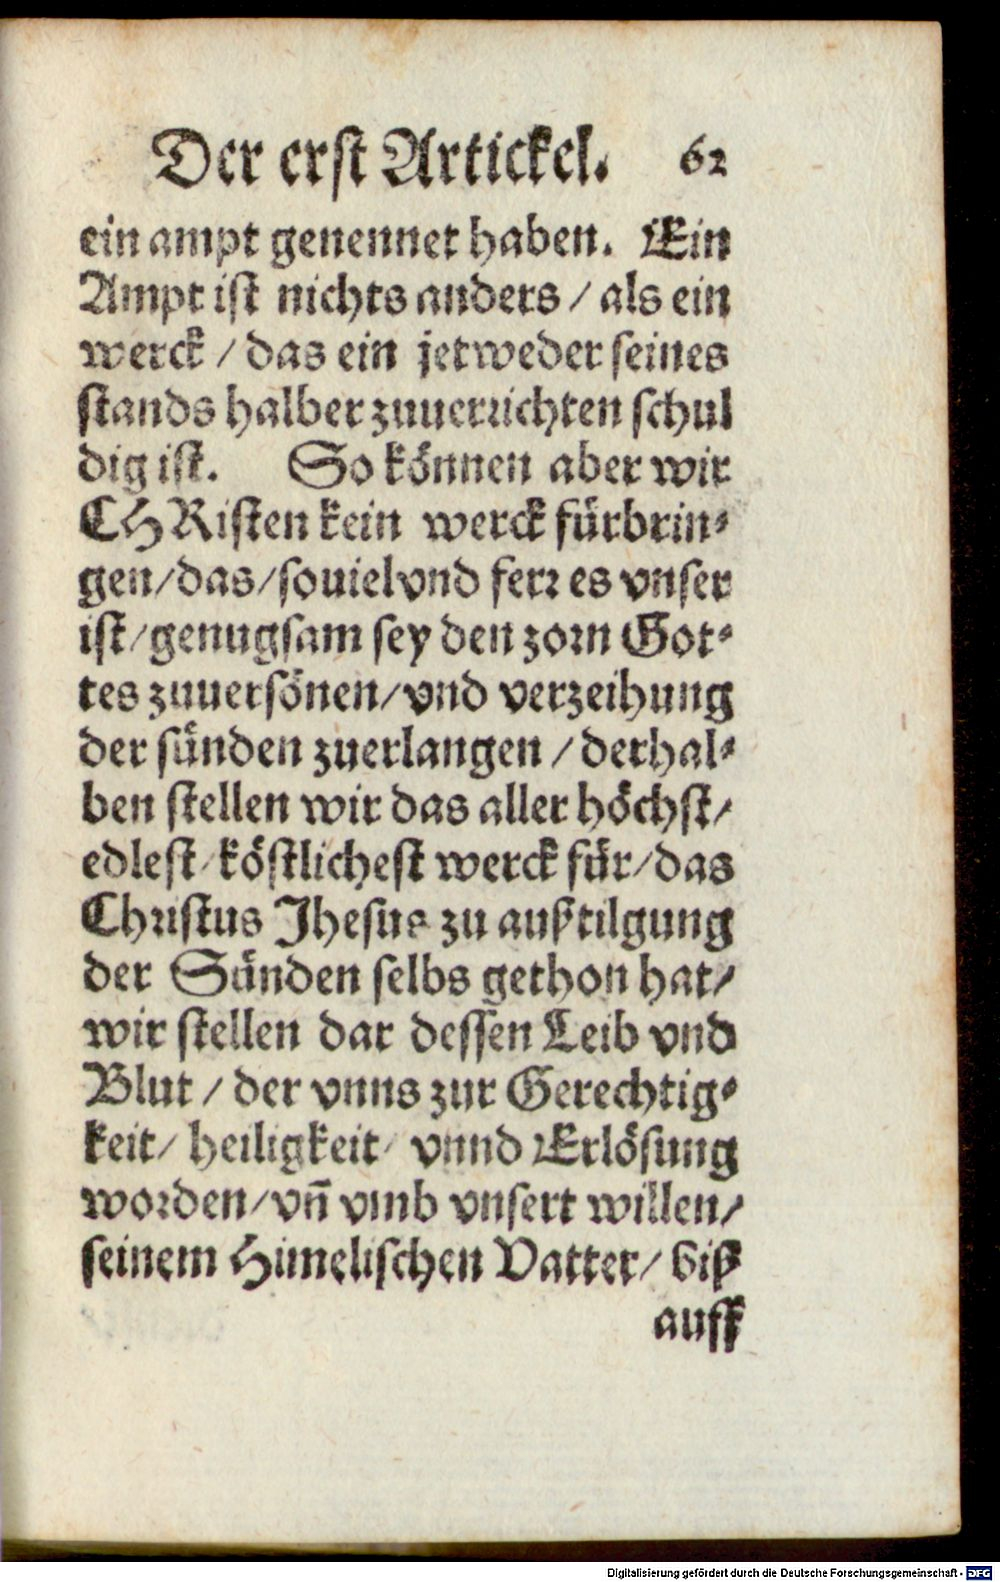 Der erst Artickel. 62
ein ampt genennet haben. Ein
Ampt ist nichts anders / als ein
werck / das ein jetweder seines
stands halber zuuerrichten schul
dig ist. So können aber wir
CHRisten kein werck fürbrin-
gen/das/souiel vnd ferr es vnser
ist/genugsam sey den zorn Got-
tes zuuersönen/vnd verzeihung
der sünden zuerlangen / derhal-
ben stellen wir das aller höchst/
edlest/köstlichest werck für/das
Christus Jhesus zu außtilgung
der Sünden selbs gethon hat/
wir stellen dar dessen Leib vnd
Blut / der vnns zur Gerechtig-
keit/ heiligkeit/ vnnd Erlösung
worden/vñ vmb vnsert willen/
seinem Himelischen Vatter/ biß
auff
Digitalisierung gefördert durch die Deutsche Forschungsgemeinschaft - DFG